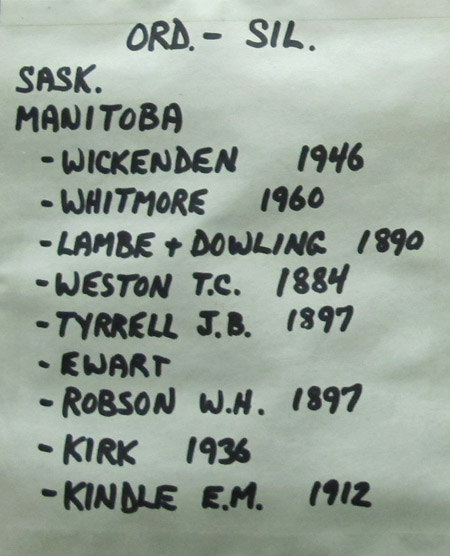 ORD. - SIL.
SASK.
MANITOBA
- WICKENDEN 1946
- WHITMORE 1960
- LAMBE + DOWLING 1890
- WESTON T.C. 1884
- TYRRELL J.B. 1897
- EWART
- ROBSON W.H. 1897
- KIRK 1936
- KINDLE E.M. 1912